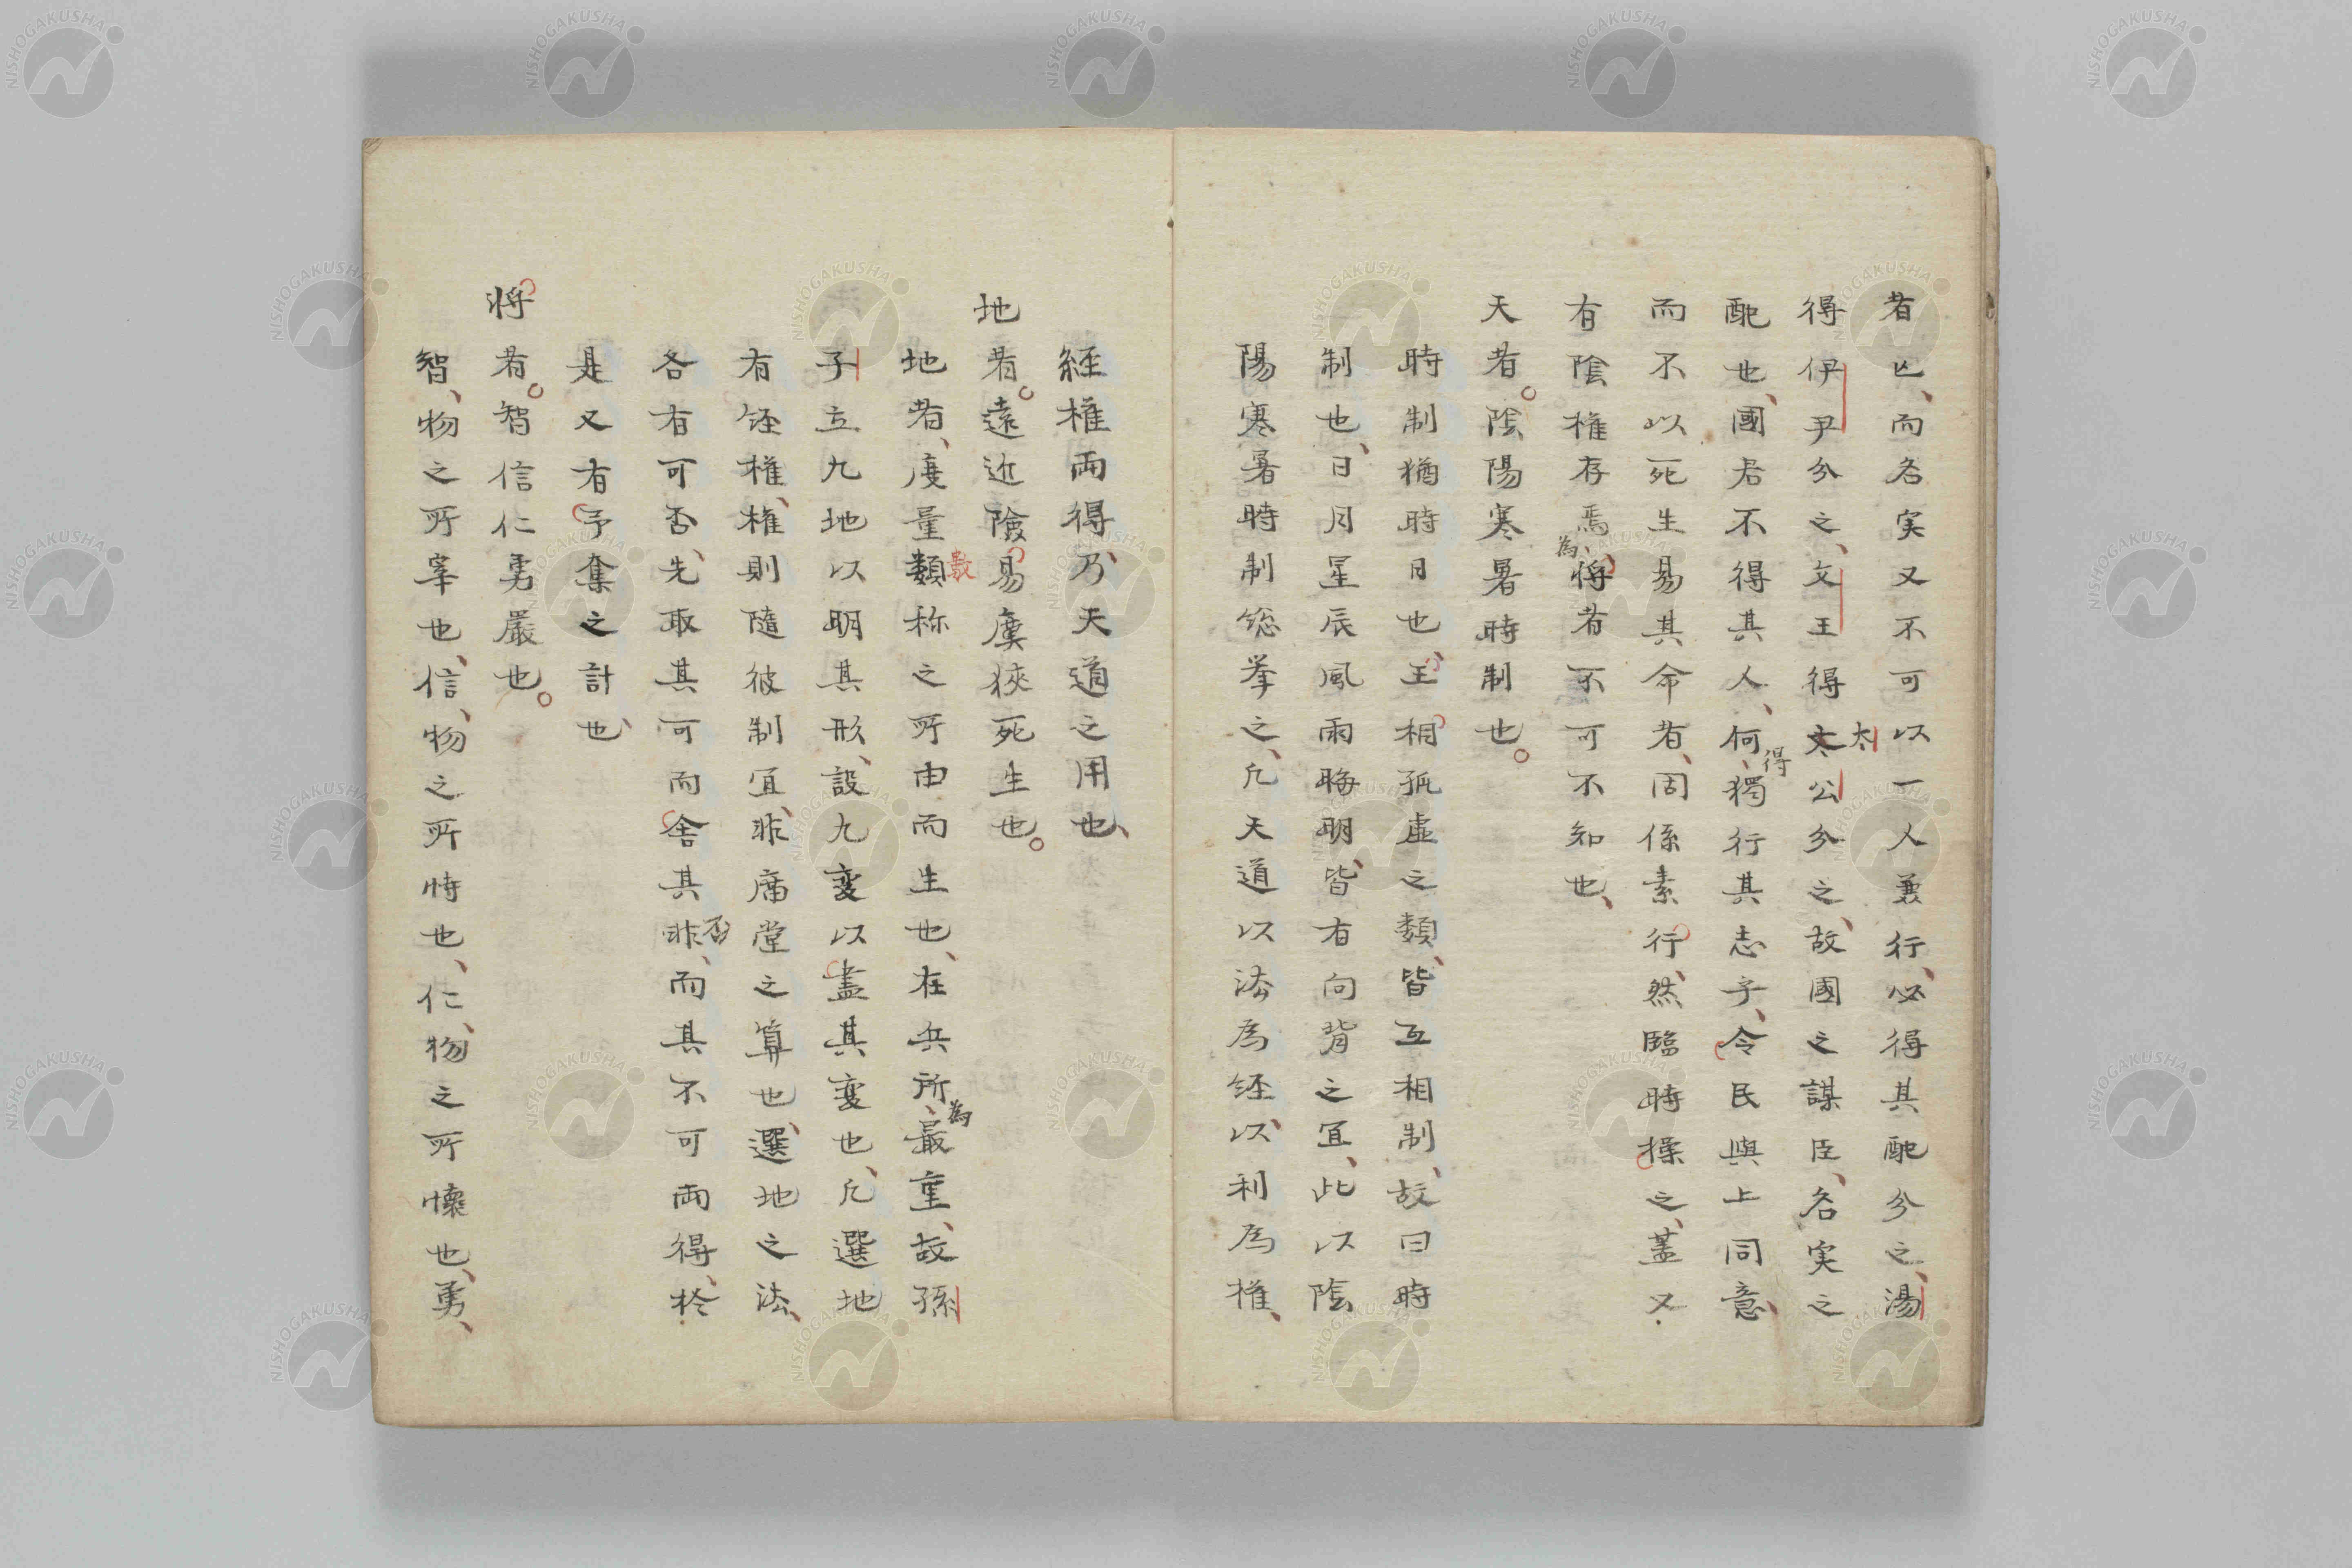 者亡、而名実又不可以一人兼行、必得其配分之、湯
得伊尹分之、文王得太公分之、故國之謀臣、名実之
配也、國君不得其人、何得獨行其志乎、令民與上同意、
而不以死生易其命者、固係素行、然臨時揉之、蓋又
有陰権存焉、為将者不可不知也、
天者。陰陽寒暑時制也。
時制猶時日也、王相孤虚之類、皆互相制、故曰時
制也、日月星辰風雨晦明、皆有向背之宜、此以陰
陽寒暑時制総挙之、凡天道以法為経、以利為権、
経権両得、乃天道之用也、
地者。遠近險易廣狹死生也。
地者、度量數称之所由而生也、在兵所為最重、故孫
子立九地以明其形、設九変以盡其変也、凡選地
有経権、権則随彼制宜、非廟堂之算也、選地之法、
各有可否、先取其可而舎其否、而其不可両得、於
是又有予奪之計也、
将者。智信仁勇嚴也。
智、物之所宰也、信、物之所恃也、仁、物之所懐也、勇、
NISHOGAKUSHA